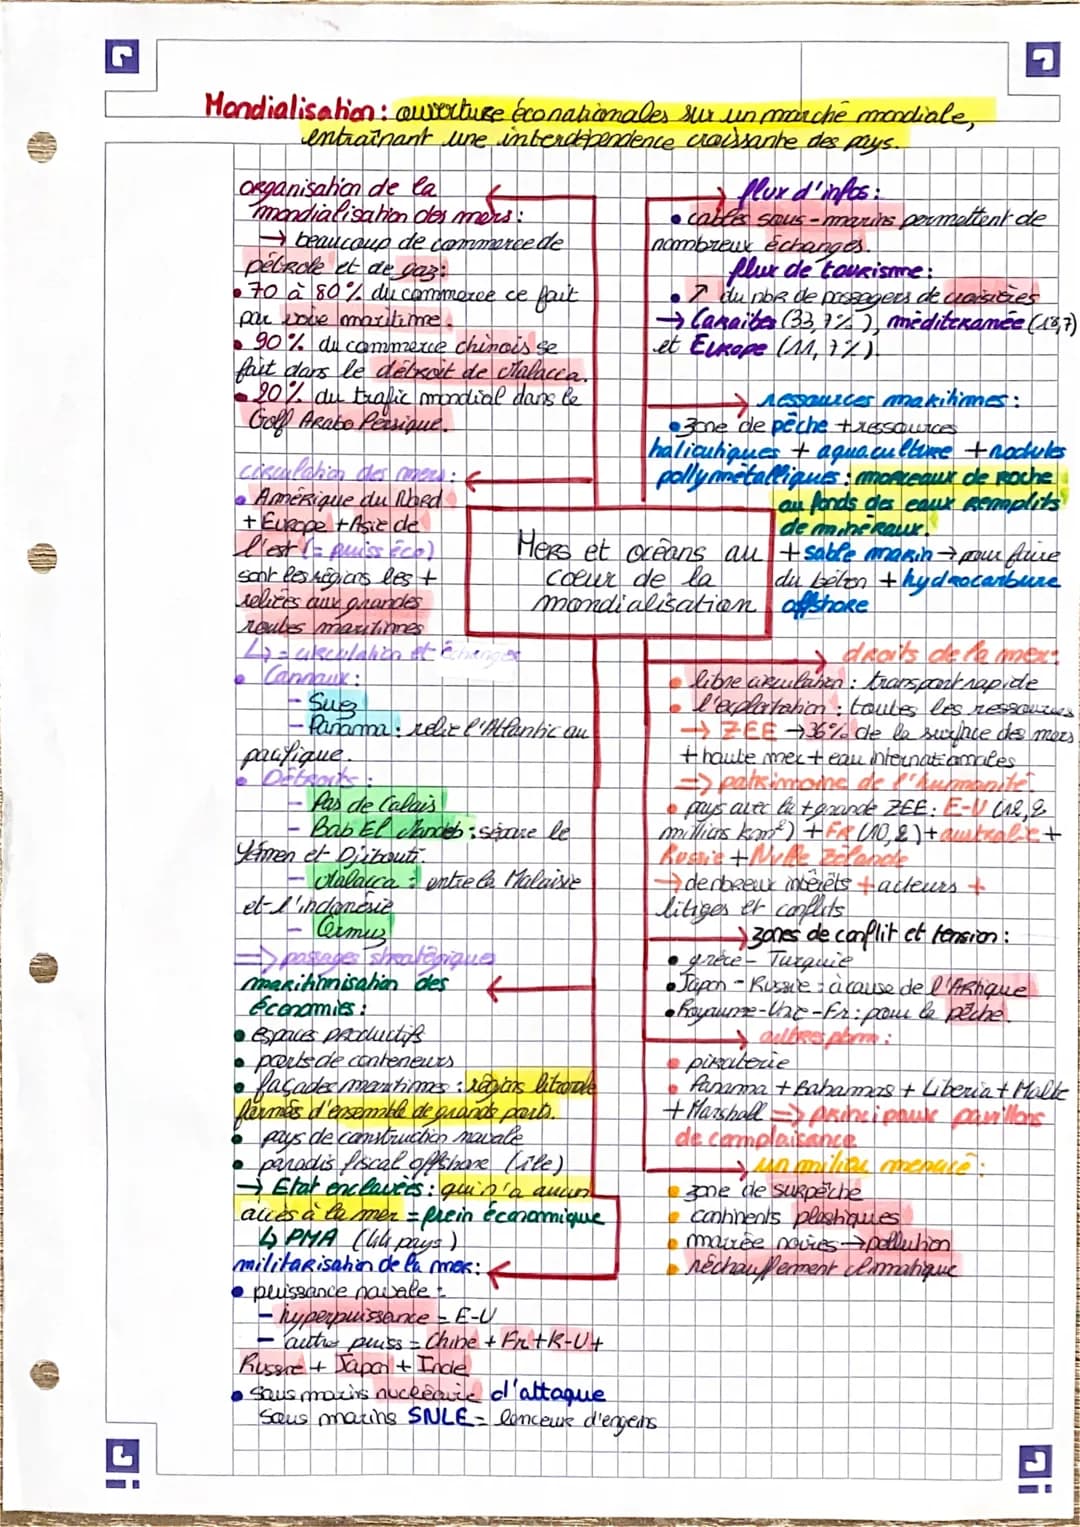 Mondialisation : ouverture éco nationales sur un marché mondiale,
entraînant une interdépendence croissante des pays.
organisation de la
mondialisation des mers :
→ beaucoup de commerce de
pétrole et de gaz :
• 70 à 80% du commerce ce fait
par voie maritime.
• 90% du commerce chinois se
fait dans le détroit de Malacca.
• 20% du trafic mondial dans le
Golf Arabo Persique.
circulation des mers :
• Amérique du Nord
+ Europe + Asie de
l'est (= puiss éco)
sont les régions les +
reliées aux grandes
routes maritimes
↳ = circulation et échanges
• Cannaux :
- Suez
- Panama : relie l'Atlantic au
pacifique.
• Détroits :
- Pas de Calais
- Bab El Mandeb : sépare le
Yémen et Djibouti.
- Malacca : entre la Malaisie
et l'indonésie
- Ormuz
=> passages stratégiques
maritimisation des
économies :
• espaces productifs
• ports de conteneurs
• façades maritimes : régions litorale
formés d'ensemble de grands ports.
• pays de construction navale
• paradis fiscal offshore (île)
→ Etat enclavées : qui n'a aucun
accès à la mer = frein économique
↳ PMA (44 pays)
militarisation de la mer :
• puissance navale :
- hyperpuissance = E-U
- autres puiss = Chine + Fr + R-U +
Russie + Japon + Inde
• Sous marins nucléaire d'attaque
Sous marins SNLE = lanceurs d'engins
Mers et océans au
coeur de la
mondialisation
flux d'infos :
• cables sous-marins permettent de
nombreux échanges.
flux de tourisme :
• ↗ du nbr de passagers de croisières
→ Caraïbes (33,7%), méditeranée (18,7)
et Europe (11,7%)
ressources maritimes :
• zone de pêche + ressources
halieutiques + aquaculture + nodules
pollymétalliques : morceaux de roche
au fonds des eaux remplits
de minéraux.
+ sable marin → pour faire
du béton + hydrocarbure
offshore
droits de la mer :
• libre circulation : transport rapide
• l'exploitation : toutes les ressources
→ ZEE → 36% de la surface des mers
+ haute mer + eau internationales
=> patrimoine de l'humanité.
• pays avec la + grande ZEE : E-U (12,2
millions km²) + FR (10,2) + australie +
Russie + Nvlle Zélande
→ de nbreux intérêts + acteurs +
litiges et conflits
zones de conflit et tension :
• grèce - Turquie
• Japon - Russie : à cause de l'Artique
• Royaume-Uni - Fr : pour la pêche.
autres pbm :
• piraterie
• Panama + Bahamas + Liberia + Malte
+ Marshall => principaux pavillons
de complaisance
un milieu menacé :
• zone de surpêche
• continents plastiques
• marrée noires → pollution
• réchauffement climatique